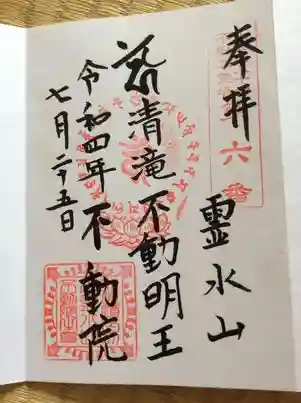 奉拝
六番
霊水山
清滝不動明王
令和四年 不動院
七月二十五日